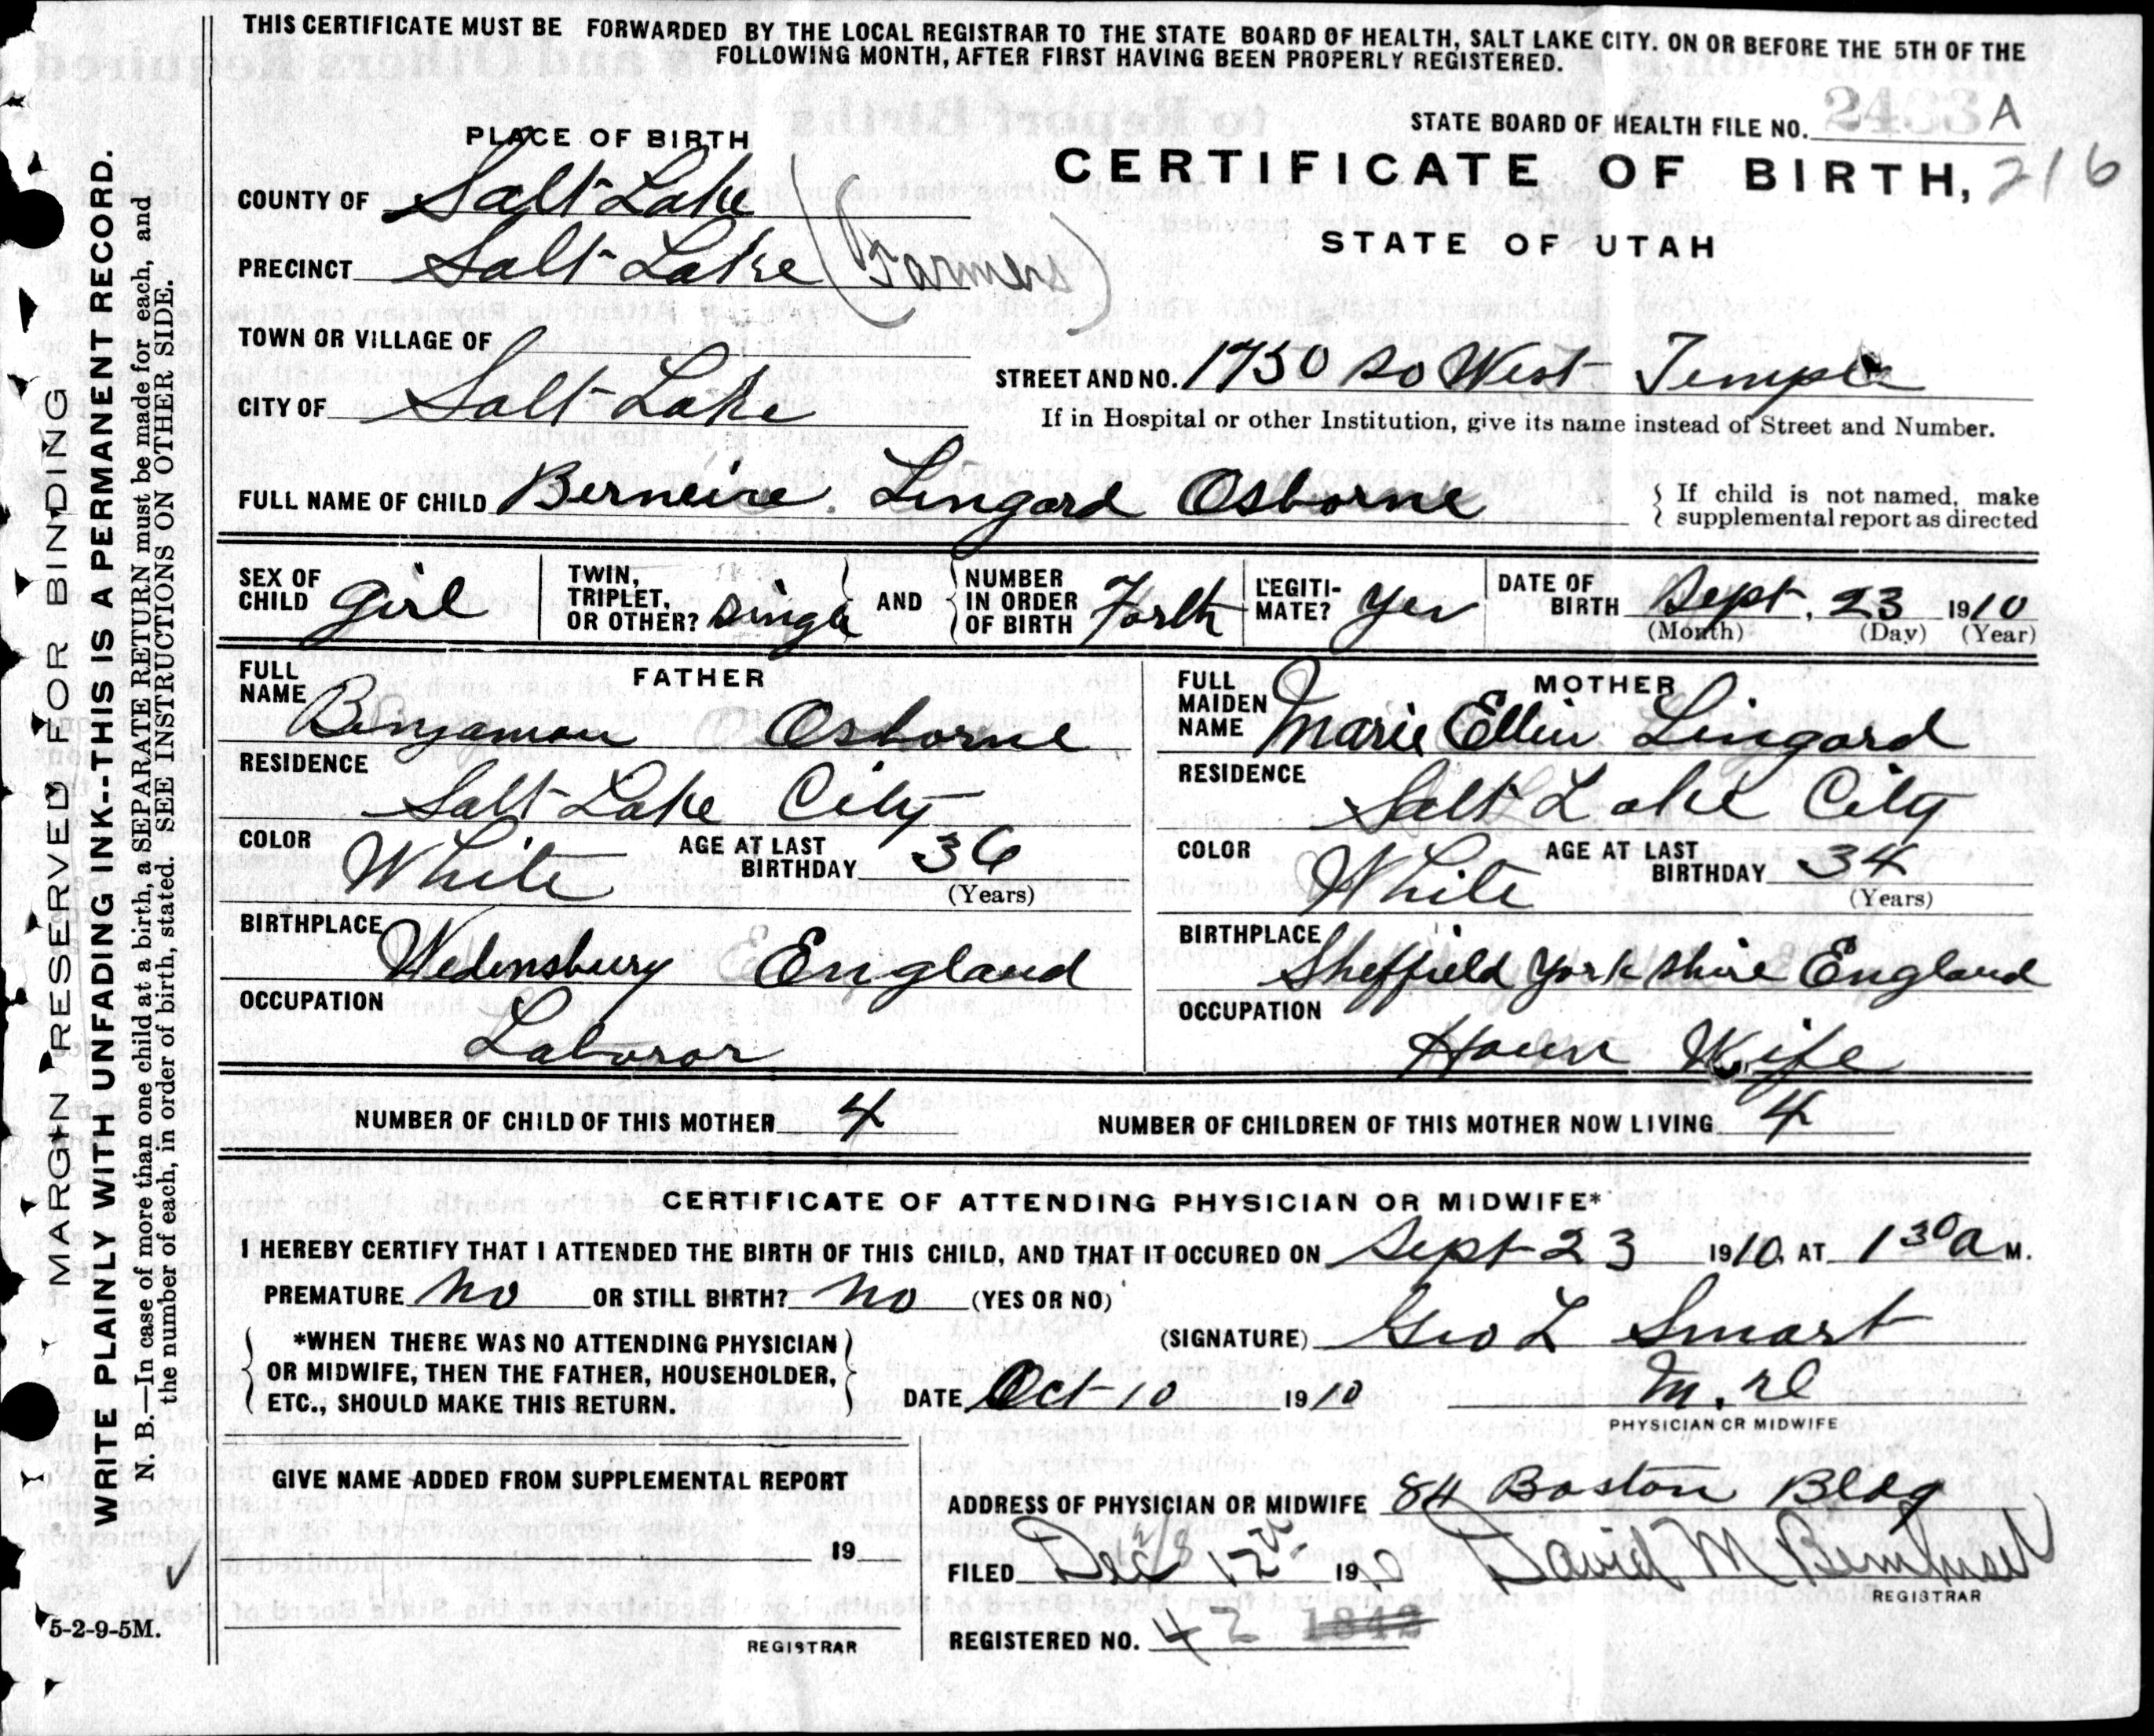 THIS CERTIFICATE MUST BE FORWARDED BY THE LOCAL REGISTRAR TO THE STATE BOARD OF HEALTH, SALT LAKE CITY. ON OR BEFORE THE 5TH OF THE
FOLLOWING MONTH, AFTER FIRST HAVING BEEN PROPERLY REGISTERED.
STATE BOARD OF HEALTH FILE NO. 2433 A
PLACE OF BIRTH
CERTIFICATE OF BIRTH, 216
STATE OF UTAH
COUNTY OF Salt Lake
PRECINCT Salt Lake (Farmers)
TOWN OR VILLAGE OF
CITY OF Salt Lake
STREET AND NO. 1750 So West Temple
If in Hospital or other Institution, give its name instead of Street and Number.
FULL NAME OF CHILD Berneice Lingard Osborne
If child is not named, make
supplemental report as directed
SEX OF CHILD girl
TWIN, TRIPLET, OR OTHER? Single AND NUMBER IN ORDER OF BIRTH Forth
LEGITI-MATE? Yes
DATE OF BIRTH Sept. 23 1910
(Month) (Day) (Year)
FATHER
FULL NAME Benjamon Osborne
RESIDENCE
Salt Lake City
COLOR White AGE AT LAST BIRTHDAY 36
(Years)
BIRTHPLACE
Wedensbury England
OCCUPATION
Laboror
MOTHER
FULL MAIDEN NAME Marie Ellin Lingard
RESIDENCE
Salt Lake City
COLOR White AGE AT LAST BIRTHDAY 34
(Years)
BIRTHPLACE
Sheffield Yorkshire England
OCCUPATION
Wife
NUMBER OF CHILD OF THIS MOTHER 4 NUMBER OF CHILDREN OF THIS MOTHER NOW LIVING 4
CERTIFICATE OF ATTENDING PHYSICIAN OR MIDWIFE*
I HEREBY CERTIFY THAT I ATTENDED THE BIRTH OF THIS CHILD, AND THAT IT OCCURED ON Sept 23 1910, AT 1 30 a M.
PREMATURE No OR STILL BIRTH? No (YES OR NO)
*WHEN THERE WAS NO ATTENDING PHYSICIAN
OR MIDWIFE, THEN THE FATHER, HOUSEHOLDER,
ETC., SHOULD MAKE THIS RETURN.
(SIGNATURE) Geo L Smart
DATE Oct 10 1910
PHYSICIAN OR MIDWIFE
GIVE NAME ADDED FROM SUPPLEMENTAL REPORT
19
REGISTRAR
ADDRESS OF PHYSICIAN OR MIDWIFE 84 Boston Bldg
FILED Dec 19
David M
REGISTRAR
REGISTERED NO. 42 1843
MARGIN RESERVED FOR BINDING
WRITE PLAINLY WITH UNFADING INK--THIS IS A PERMANENT RECORD.
N. B.—In case of more than one child at a birth, a SEPARATE RETURN must be made for each, and
the number of each, in order of birth, stated SEE INSTRUCTIONS ON OTHER SIDE.
5-2-9-5M.